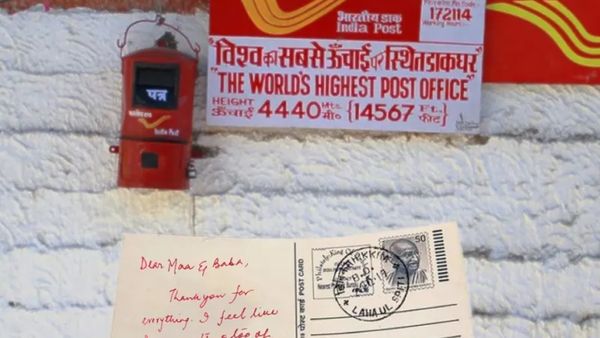 भारतीय डाक
India Post
172114
Working Hours:-
"विश्व का सबसे ऊँचाई पर स्थित डाकघर"
"THE WORLD'S HIGHEST POST OFFICE"
HEIGHT 4440 Mts. {14567 Ft.}
ऊँचाई मी० फीट
पत्र
India Post
Dear Maa & Baba,
Thank you for
everything. I feel like
POST CARD
50
HIKKIM
LAHAUL SPITI